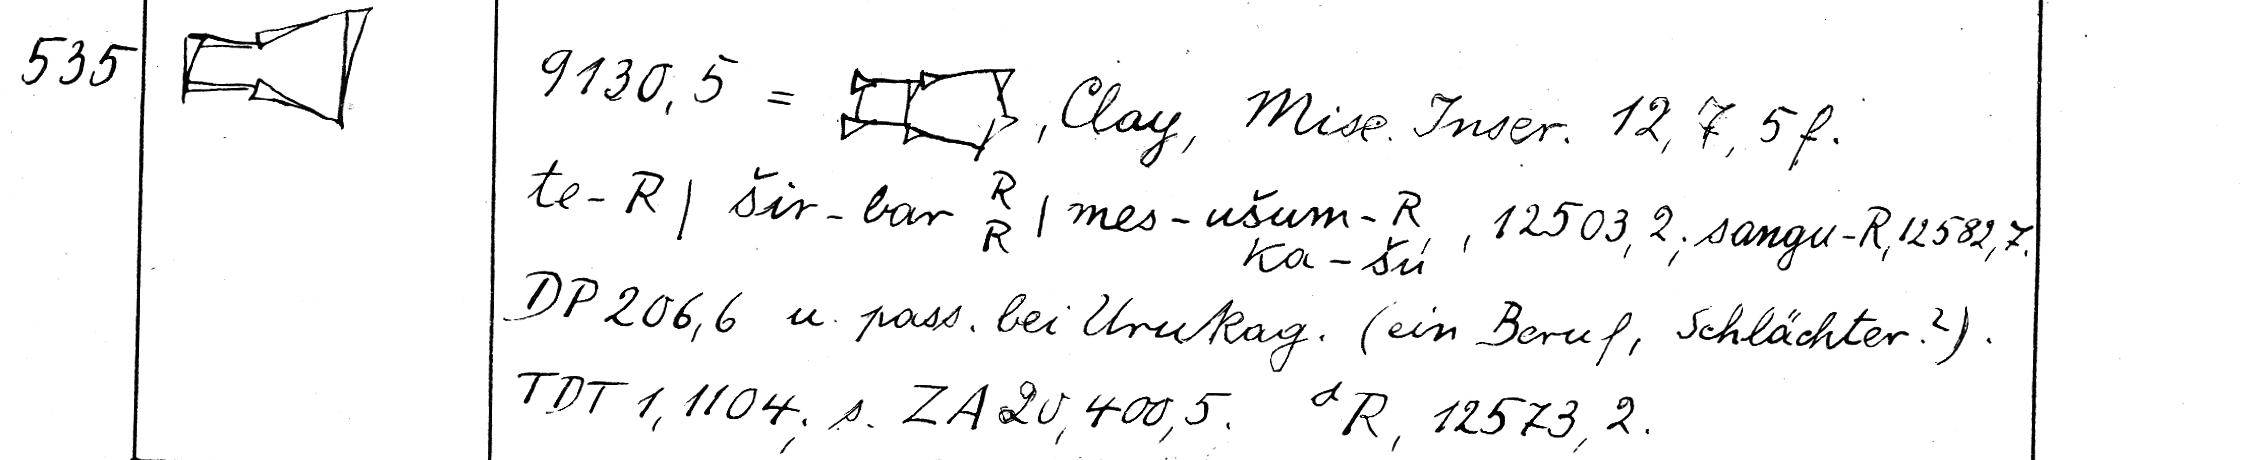 535
9130, 5 = , Clay, Misc. Inscr. 12, 7, 5 f.
te-R | šir-bar R R | mes-ušum-R, 12503, 2; sangu-R, 12582, 7.
ka-šú
DP 206, 6 u. pass. bei Urukag. (ein Beruf, Schlächter?).
TDT 1, 1104; s. ZA 20, 400, 5. ᵈR, 12573, 2.